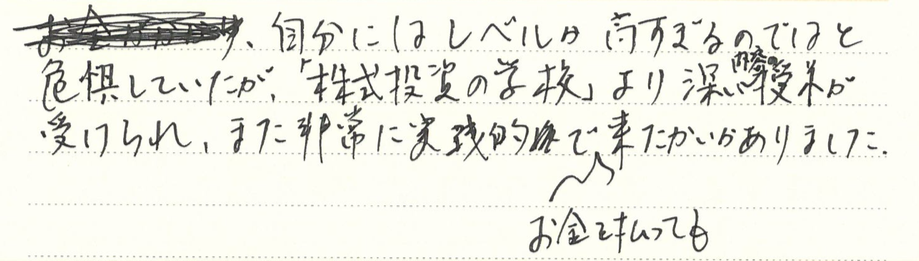 、自分にはレベルが高すぎるのではと
危惧していたが、「株式投資の学校」より深い内容の授業が
受けられ、また非常に実践的で来たかいがありました。
お金を払っても